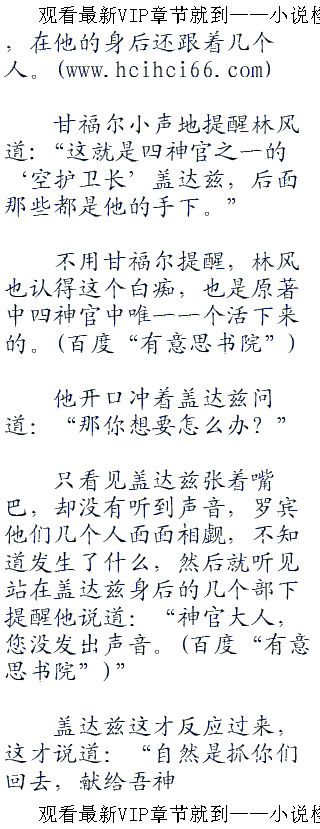 观看最新VIP章节就到一一小说检
，在他的身后还跟着几个
人。(www.hcihci66.com)
甘福尔小声地提醒林风
道：“这就是四神官之一的
‘空护卫长’盖达兹，后面
那些都是他的手下。”
不用甘福尔提醒，林风
也认得这个白痴，也是原著
中四神官中唯一一个活下来
的。(百度“有意思书院”)
他开口冲着盖达兹问
道：“那你想要怎么办？”
只看见盖达兹张着嘴
巴，却没有听到声音，罗宾
他们几个人面面相觑，不知
道发生了什么，然后就听见
站在盖达兹身后的几个部下
提醒他说道：“神官大人，
您没发出声音。(百度“有意
思书院”)”
盖达兹这才反应过来，
这才说道：“自然是抓你们
回去，献给吾神
观看最新VIP章节就到一一小说检